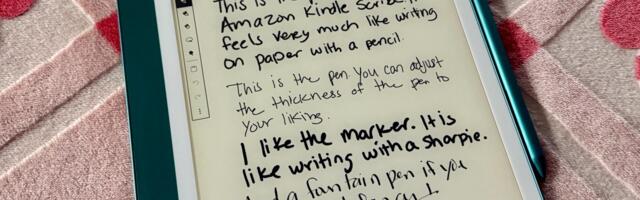 This is
Amazon Kindle Scribe. It
feels very much like writing
on paper with a pencil.
This is the pen. You can adjust
the thickness of the pen to
your liking.
I like the marker. It is
like writing with a Sharpie.
And a fountain pen if you